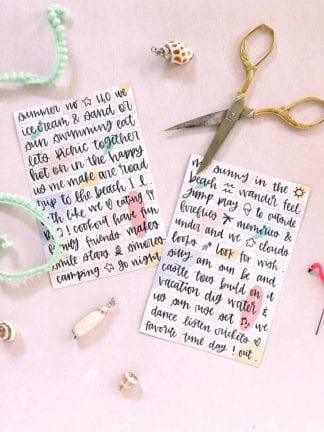 summer no ☆ 110 we
ice cream & sand or
sun swimming eat
lets picnic together
hot on in the happy
us me make are read
up to the beach I
with like we ♡ eating
cookout have fun
family friends makes
smile stars & smores
camping ☆ go night
my sunny in the ☀
beach wander feel
jump play to outside
fireflies memories &
under and we ☆ clouds
look for wish
silly am sun be and
castle toes build on it
vacation dig water &
us sun rise set ♫ we
dance listen crickets ♡
favorite time day ! out .